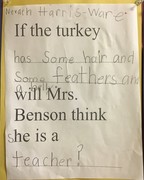 Nevaeh Harris-Ware
If the turkey
has some hair and
some feathers and
a belly
will Mrs.
Benson think
she is a
teacher?